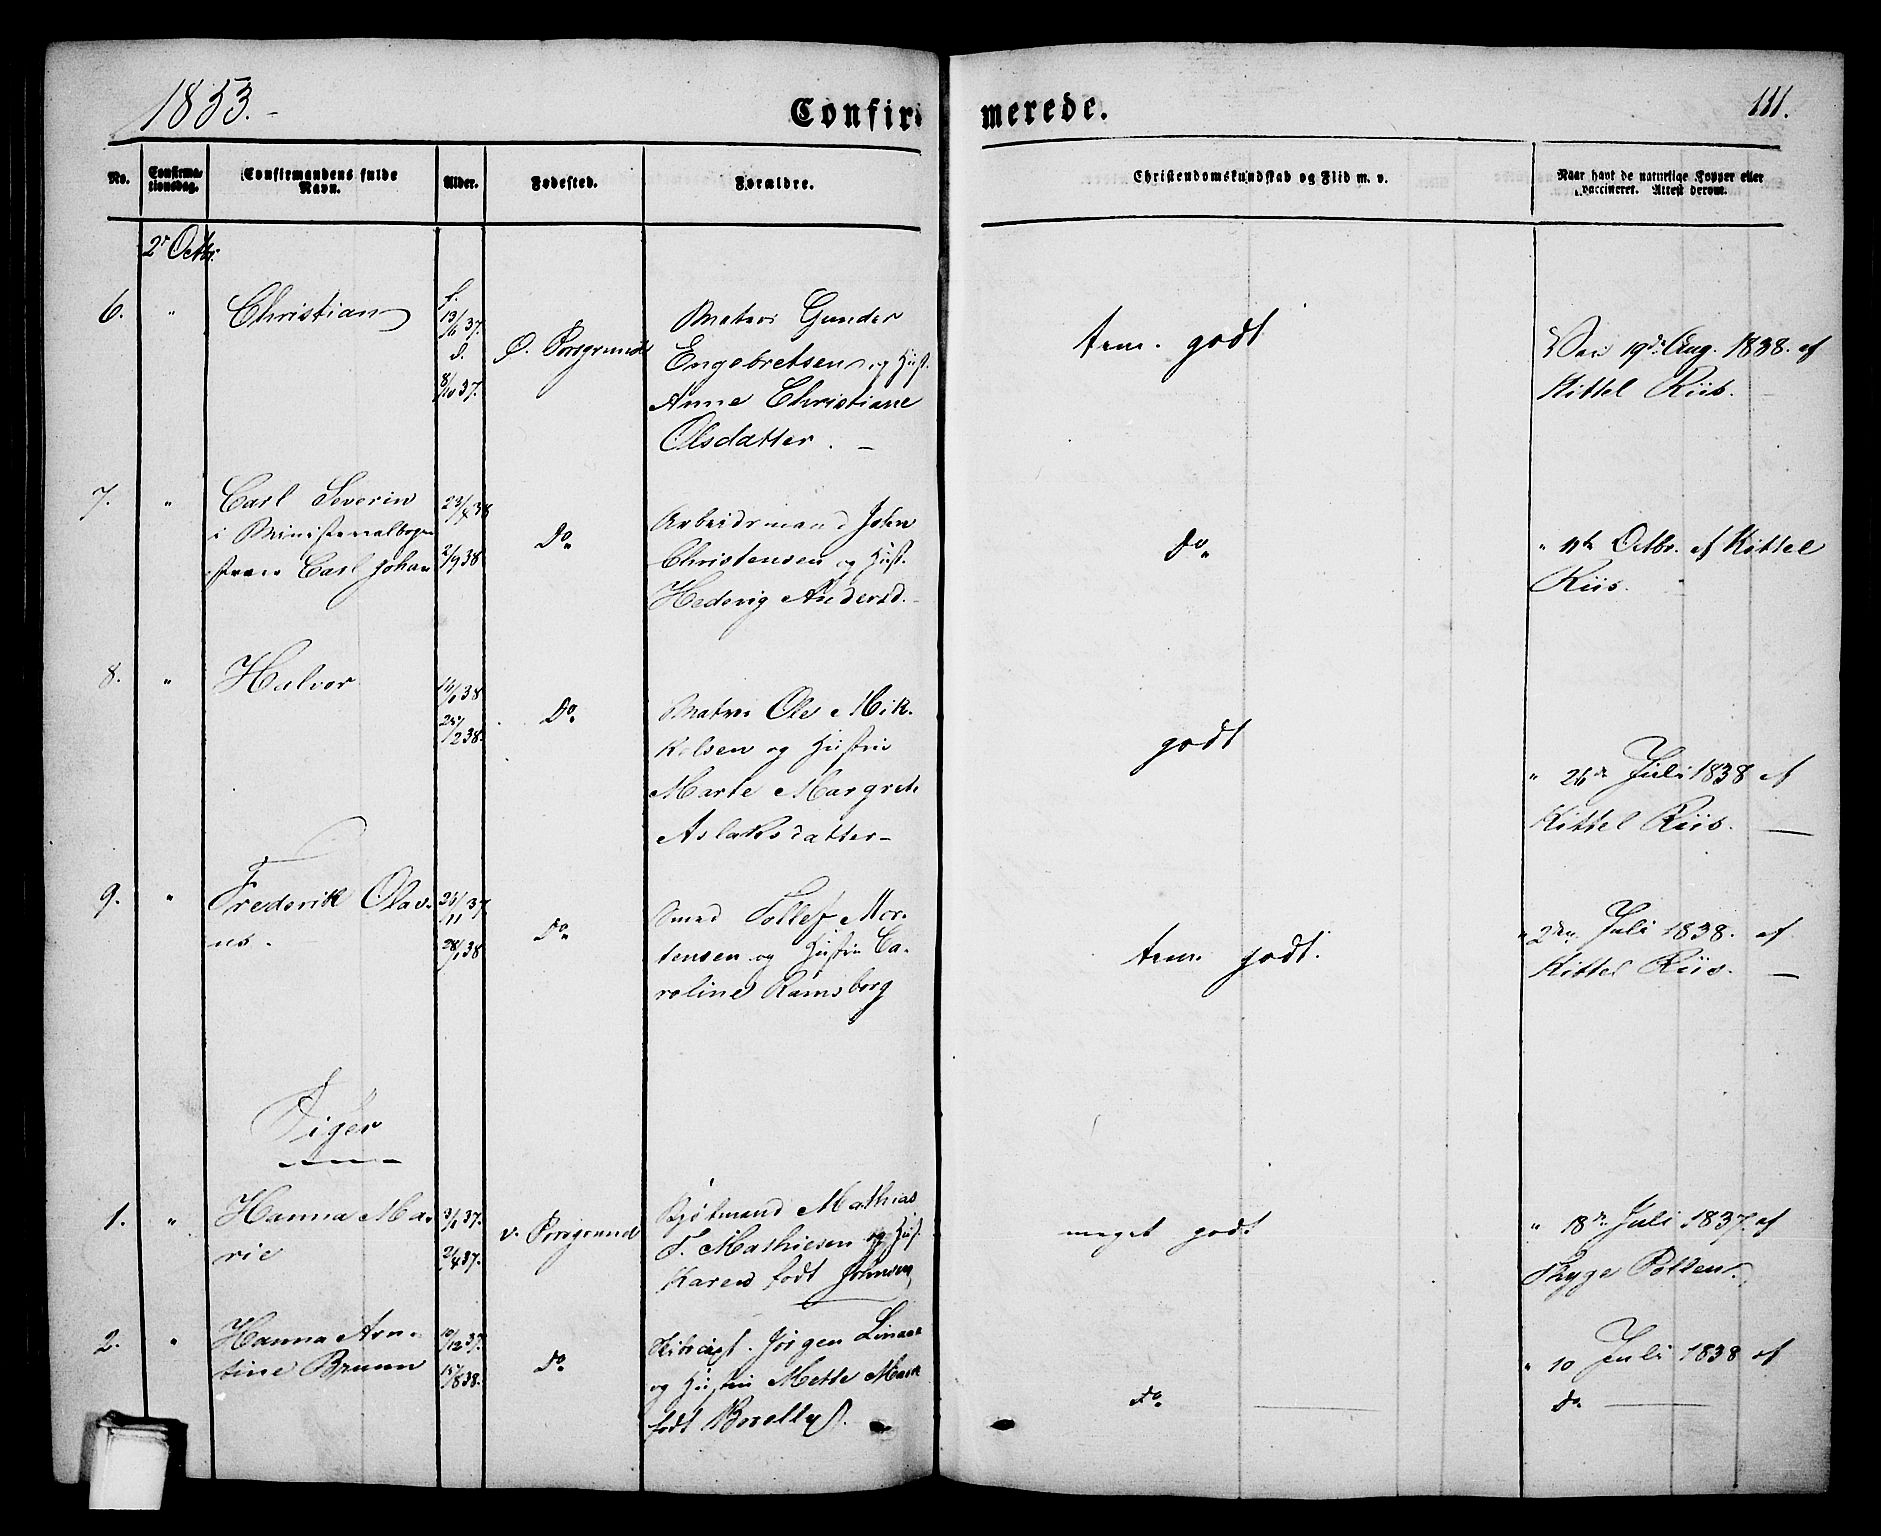 1853.
Confirmerede.
111.
No.
Confirma-
tionsdag.
Confirmandens fulde
Navn.
Alder.
Fødested.
Forældre.
Christendomskundskab og Flid m. v.
Naar havt de naturlige Kopper eller
vaccineret. Attest derom.
2 Octbr.
6. " Christian
f.
13/6 37.
d.
8/10 37.
Ø. Porsgrund
Matros Gunder
Engebretsen og Hust.
Anne Christiane
Olsdatter. —
tem. godt
Vac 19de Aug. 1838. af
Kittel Riis. —
7. " Carl Severin
i Ministerialbogen
Carl Johan
23/4 38
2/9 38.
Do.
Arbeidsmand John
Christensen og Hust.
Hedevig Andersd.
Do.
" Octbr. af Kittel
Riis.
8. " Halvor
38
25/2 38.
Do.
Matros Ole Mik-
kelsen og Hustru
Marte Margrete
Aslaksdatter —
godt
" 26de Juli 1838 af
Kittel Riis. —
9. " Frederik Olav-
us.
25/11 37.
28/1 38
Do.
Smed Tollef Mor-
tensen og Hustru Ca-
roline Ramsborg
tem. godt.
" 2den Juli 1838. af
Kittel Riis. —
Piger
1. " Hanna Ma-
rie
3/1 37.
2/4 37.
v. Porsgrund
Mathias
T. Mathiesen og Hust.
Karen født Johnsen
meget godt
" 18de Juli 1837. af
Thyge
2. " Hanna Arn-
tine Bruun
10/12 37.
15/8 38.
Do.
Skibscapt. Jørgen Linaae
og Hustru Mette Mark
født
Do. —
" 10 Juli 1838 af
Do. —